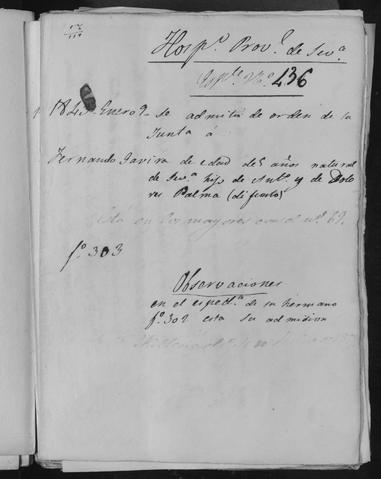 Hosp.º Prov.l de Sev.a
Esp.te N.º 436
184 Enero 9 - se admite de orden de la
Junta á
Fernando Tavira de edad de 5 años natural
de Sev.a hijo de Ant.º y de Dolo
res Palma (difunto)
Está en los mayores con el n.º 69.
fº 303
Observaciones
en el esped.te de su hermano
fº 302 esta su admision